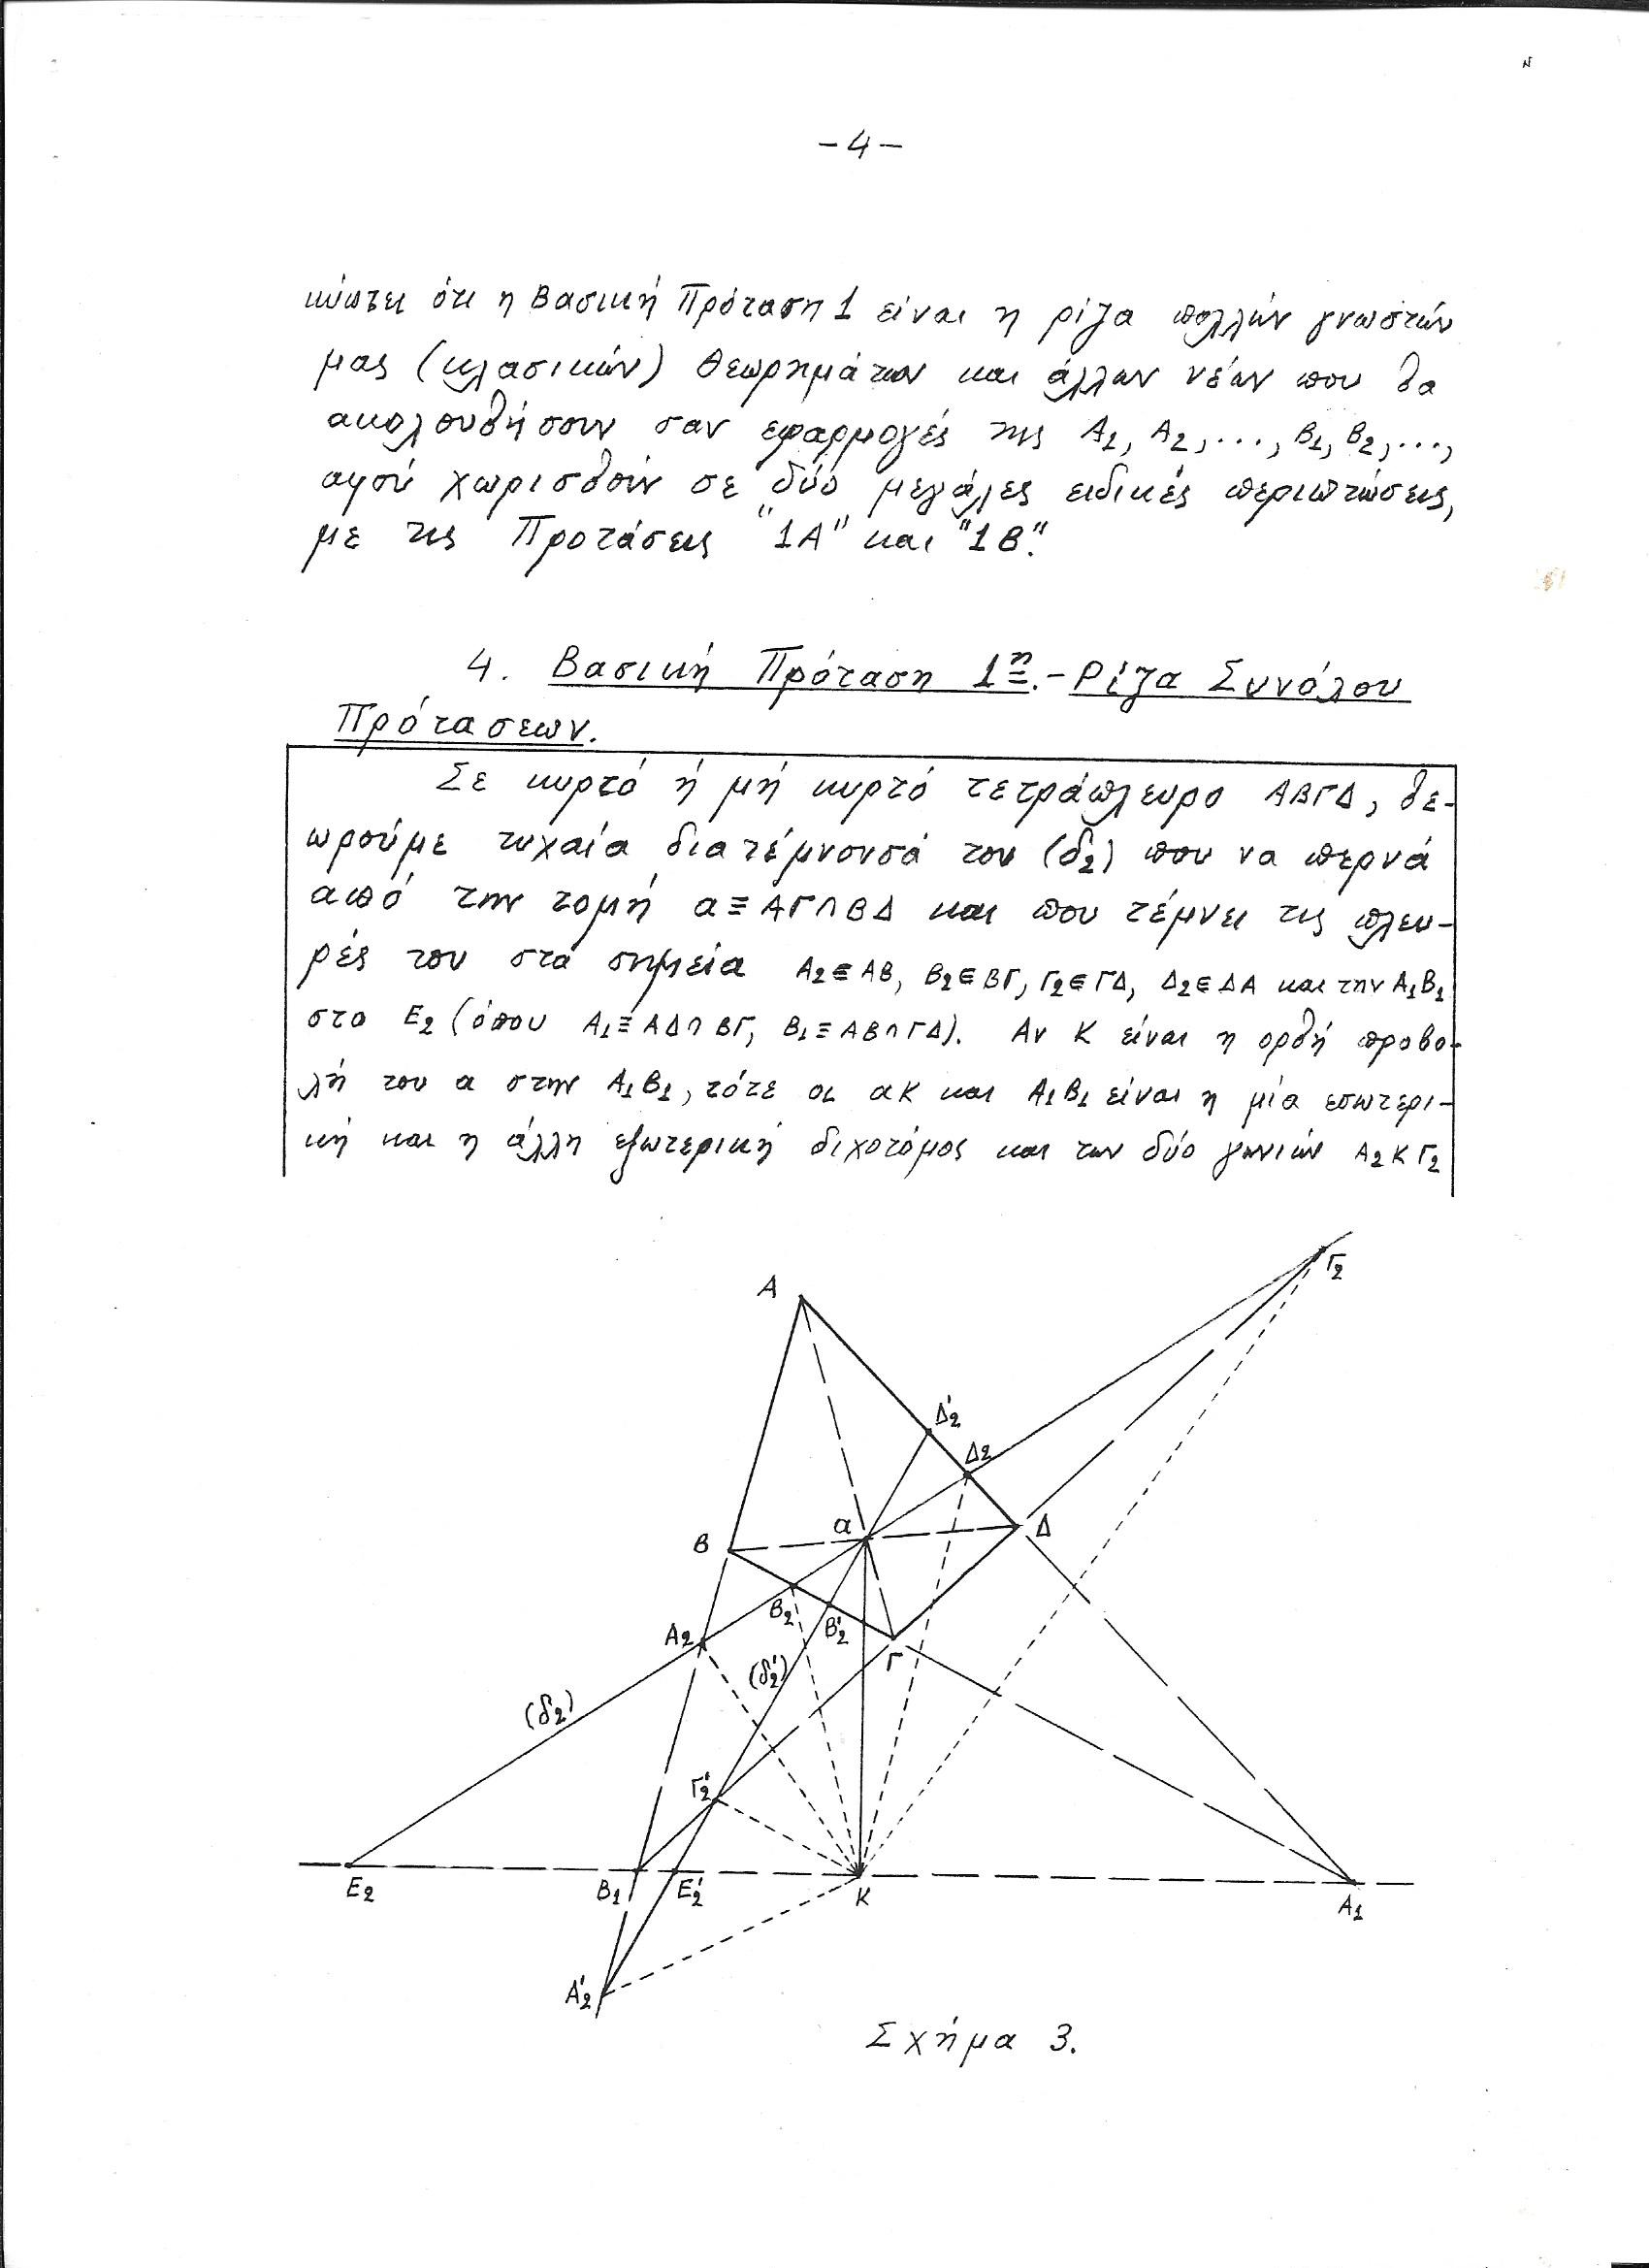 -4-
κύπτει ότι η Βασική Πρόταση 1 είναι η ρίζα πολλών γνωστών
μας (κλασικών) θεωρημάτων και άλλων νέων που θα
ακολουθήσουν σαν εφαρμογές της Α1, Α2, ..., Β1, Β2, ...,
αφού χωρισθούν σε δύο μεγάλες ειδικές περιπτώσεις,
με τις Προτάσεις "1Α" και "1Β".
4. Βασική Πρόταση 1η.- Ρίζα Συνόλου
Πρότασεων.
Σε κυρτό ή μή κυρτό τετράπλευρο ΑΒΓΔ, θε-
ωρούμε τυχαία διατέμνουσά του (δ2) που να περνά
από την τομή α≡ΑΓ∩ΒΔ και που τέμνει τις πλευ-
ρές του στα σημεία Α2∈ΑΒ, Β2∈ΒΓ, Γ2∈ΓΔ, Δ2∈ΔΑ και την Α1Β1
στο Ε2 (όπου Α1≡ΑΔ∩ΒΓ, Β1≡ΑΒ∩ΓΔ). Αν Κ είναι η ορθή προβο-
λή του α στην Α1Β1, τότε οι αΚ και Α1Β1 είναι η μία εσωτερι-
κή και η άλλη εξωτερική διχοτόμος και των δύο γωνιών Α2ΚΓ2
Α
Γ2
Δ'2
Δ2
α
Δ
Β
Β2
Β'2
Α2
Γ
(δ'2)
(δ2)
Γ'2
Ε2
Β1
Ε'2
Κ
Α1
Α'2
Σχήμα 3.